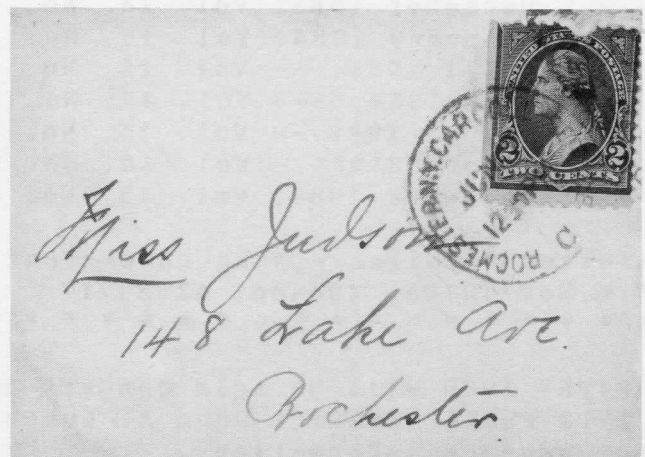 UNITED STATES POSTAGE
2 2
TWO CENTS
ROCHESTER.N.Y. CAR
JUN
12
Miss Judson
148 Lake Ave.
Rochester